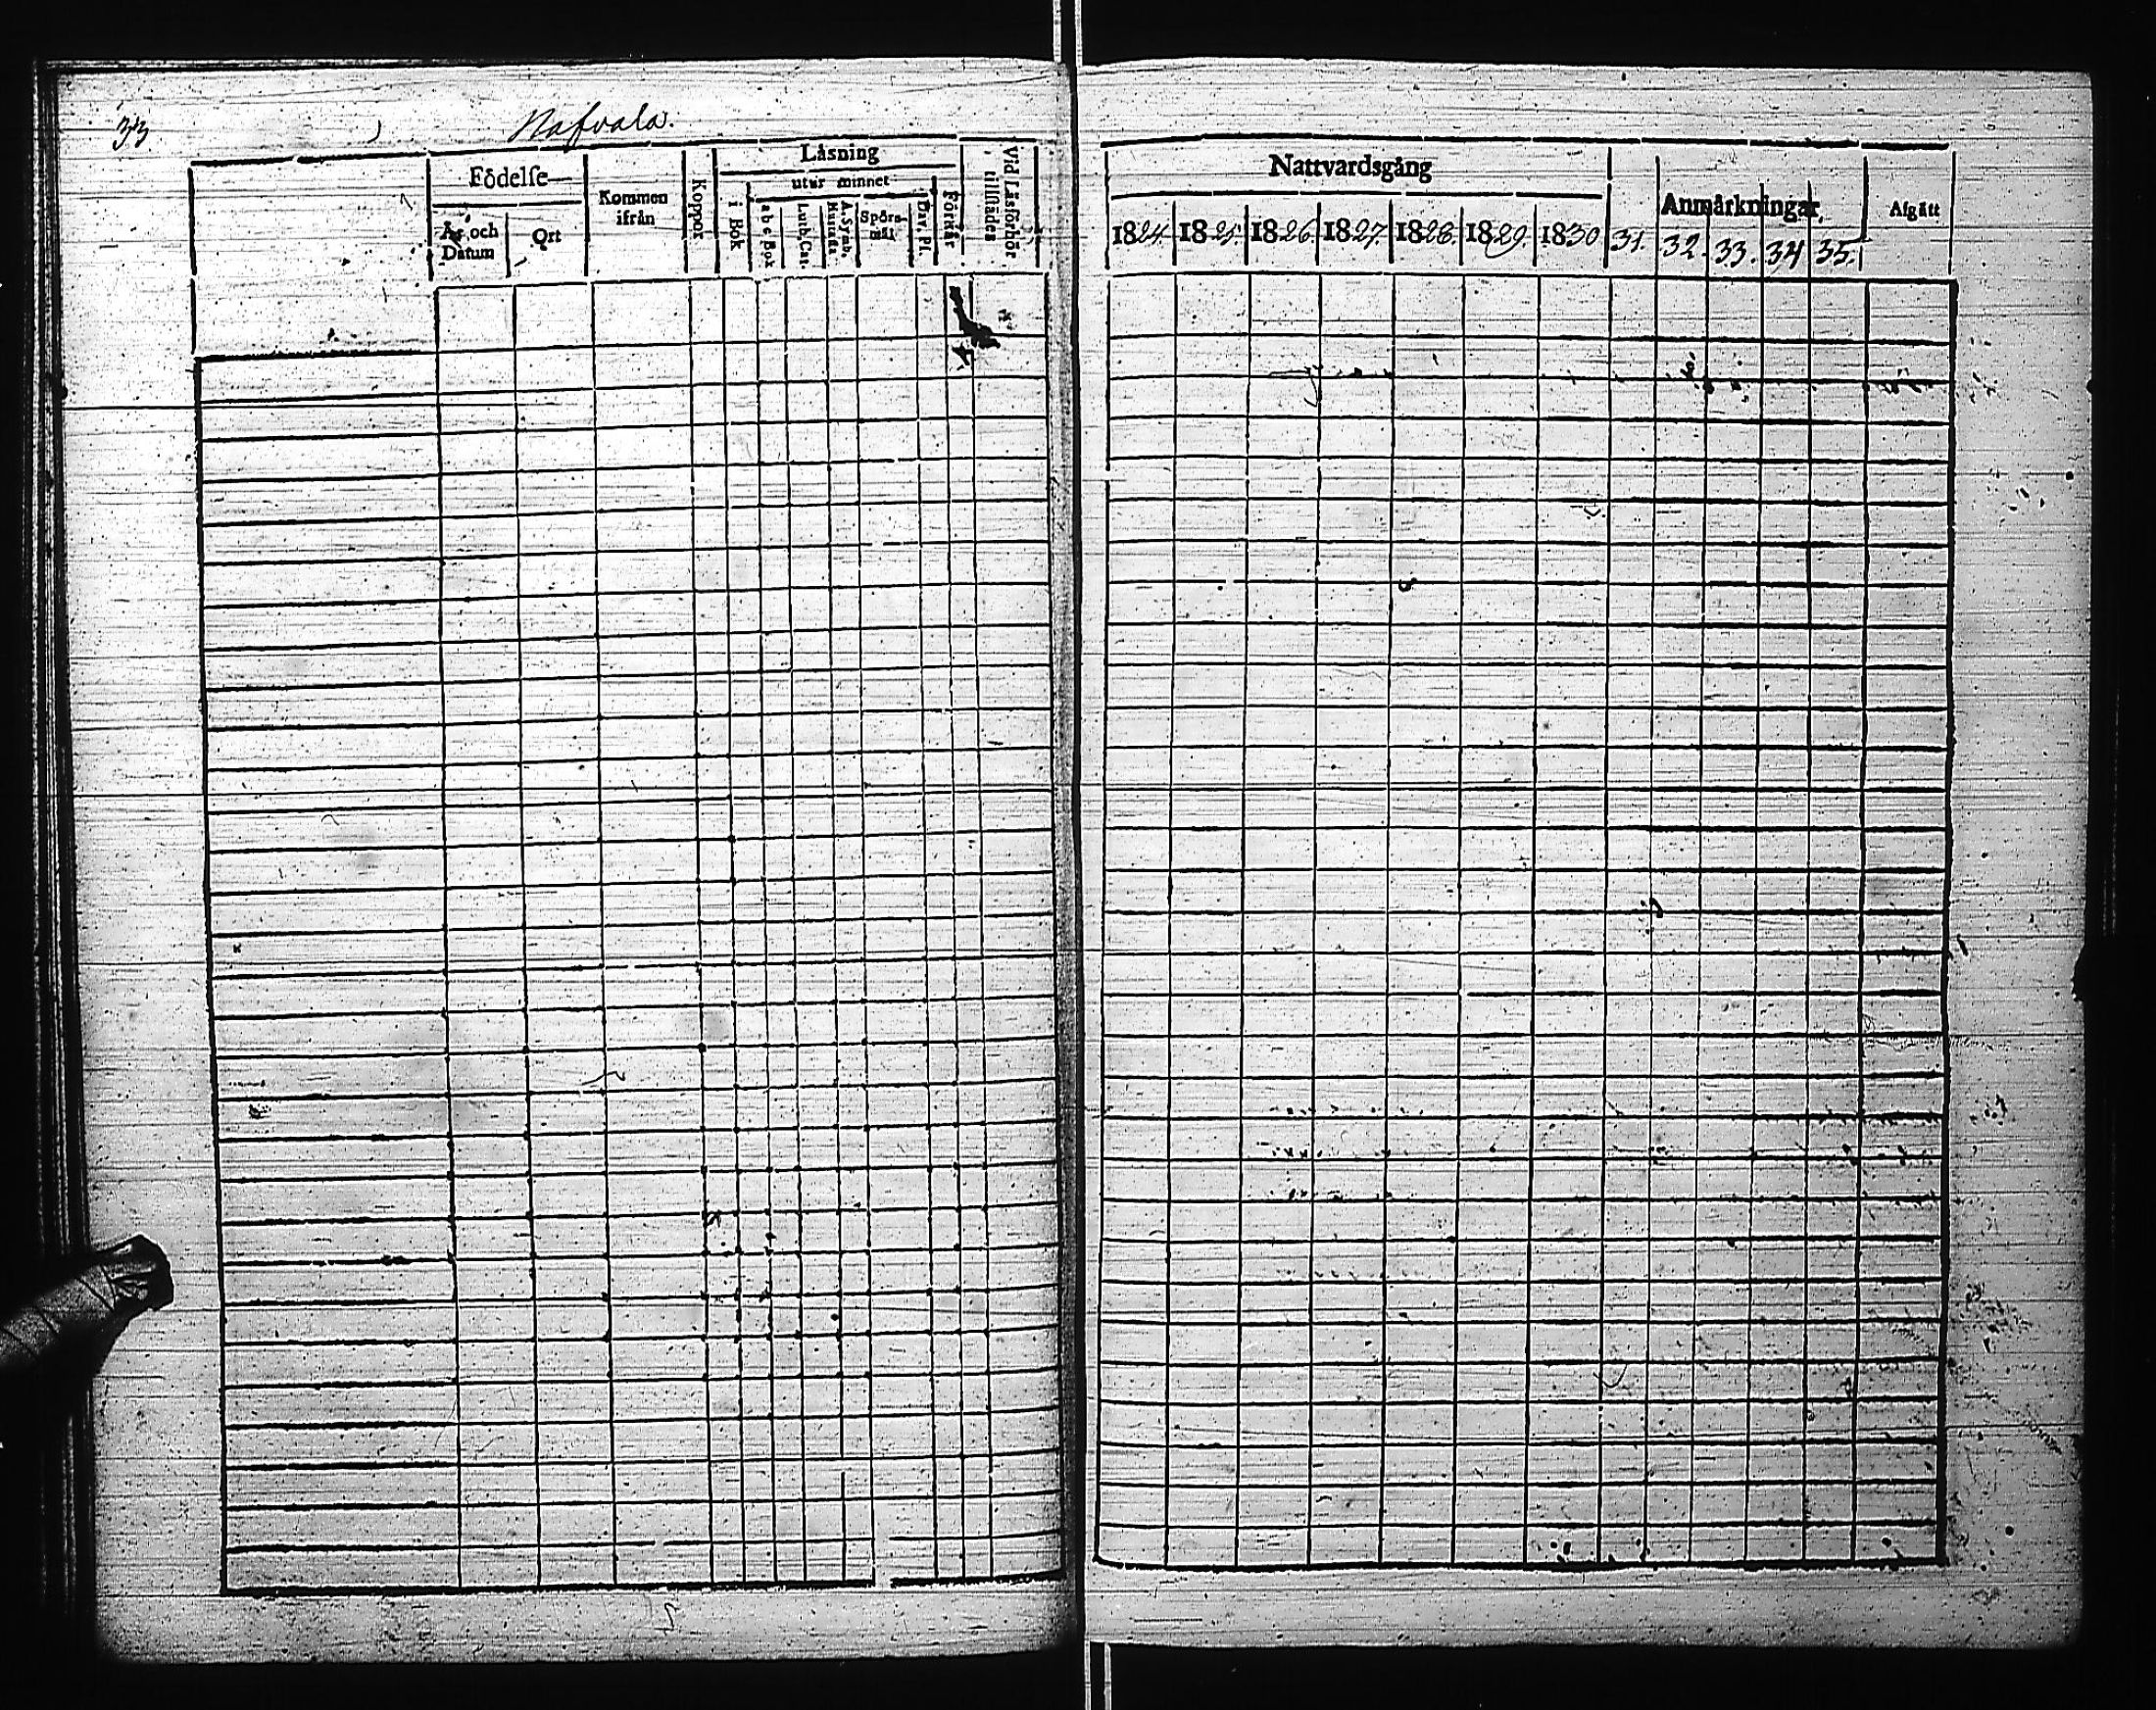 33
Nafvala.
Födelse
Kommen ifrån
Koppor
Läsning
utur minnet
År och Datum
Ort
i Bok
a b c Bok
Luth. Cat.
A. Symb.
Hustafla
Spörsmål
Dav. Ps.
Förstår
Vid Läsförhör tillstädes
Nattvardsgång
Anmärkningar
Afgått
1824. 1825. 1826. 1827. 1828. 1829. 1830 31. 32. 33. 34 35.